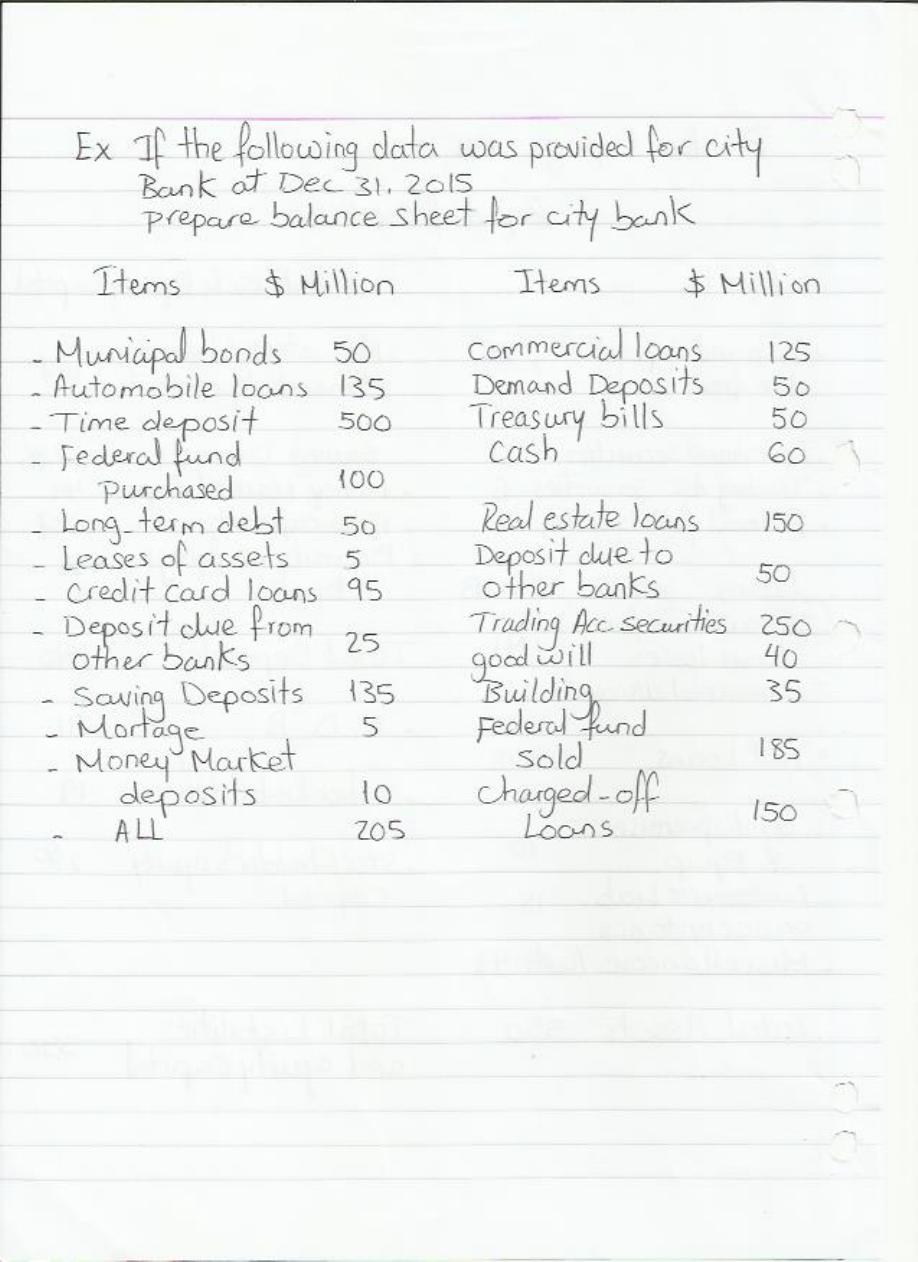 Ex If the following data was provided for city
Bank at Dec 31. 2015
prepare balance sheet for city bank
Items $ Million Items $ Million
- Municipal bonds 50 commercial loans 125
- Automobile loans 135 Demand Deposits 50
- Time deposit 500 Treasury bills 50
- Federal fund Cash 60
purchased 100
- Long-term debt 50 Real estate loans 150
- Leases of assets 5 Deposit due to
- Credit card loans 95 other banks 50
- Deposit due from Trading Acc. securities 250
other banks 25 good will 40
- Saving Deposits 135 Building 35
- Mortage 5 Federal fund
- Money Market sold 185
deposits 10 charged-off
- ALL 205 Loans 150